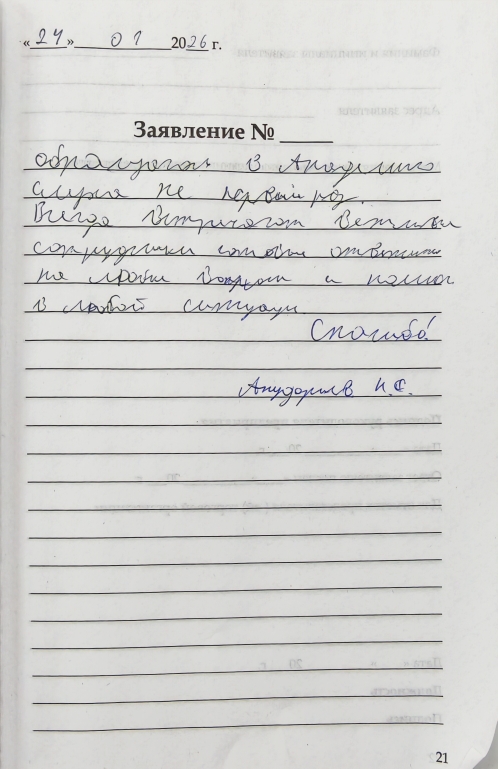 «24» 01 2026 г.
Заявление № ____
обращаюсь в Академию
слуха не первый раз.
Всегда встречают вежливые
сотрудники готовые ответить
на любые вопросы и помочь
в любой ситуации
Спасибо!
И.С.
21